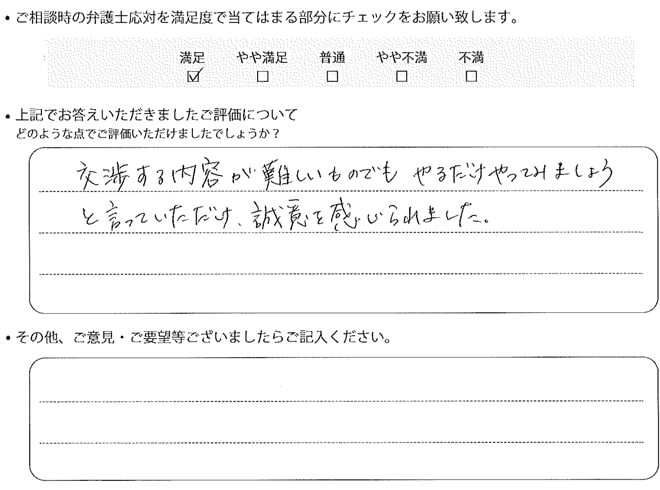 • ご相談時の弁護士応対を満足度で当てはまる部分にチェックをお願い致します。
満足 やや満足 普通 やや不満 不満
☑ ☐ ☐ ☐ ☐
• 上記でお答えいただきましたご評価について
どのような点でご評価いただけましたでしょうか？
交渉する内容が難しいものでも やるだけやってみましょう
と言っていただけ、誠意を感じられました。
• その他、ご意見・ご要望等ございましたらご記入ください。